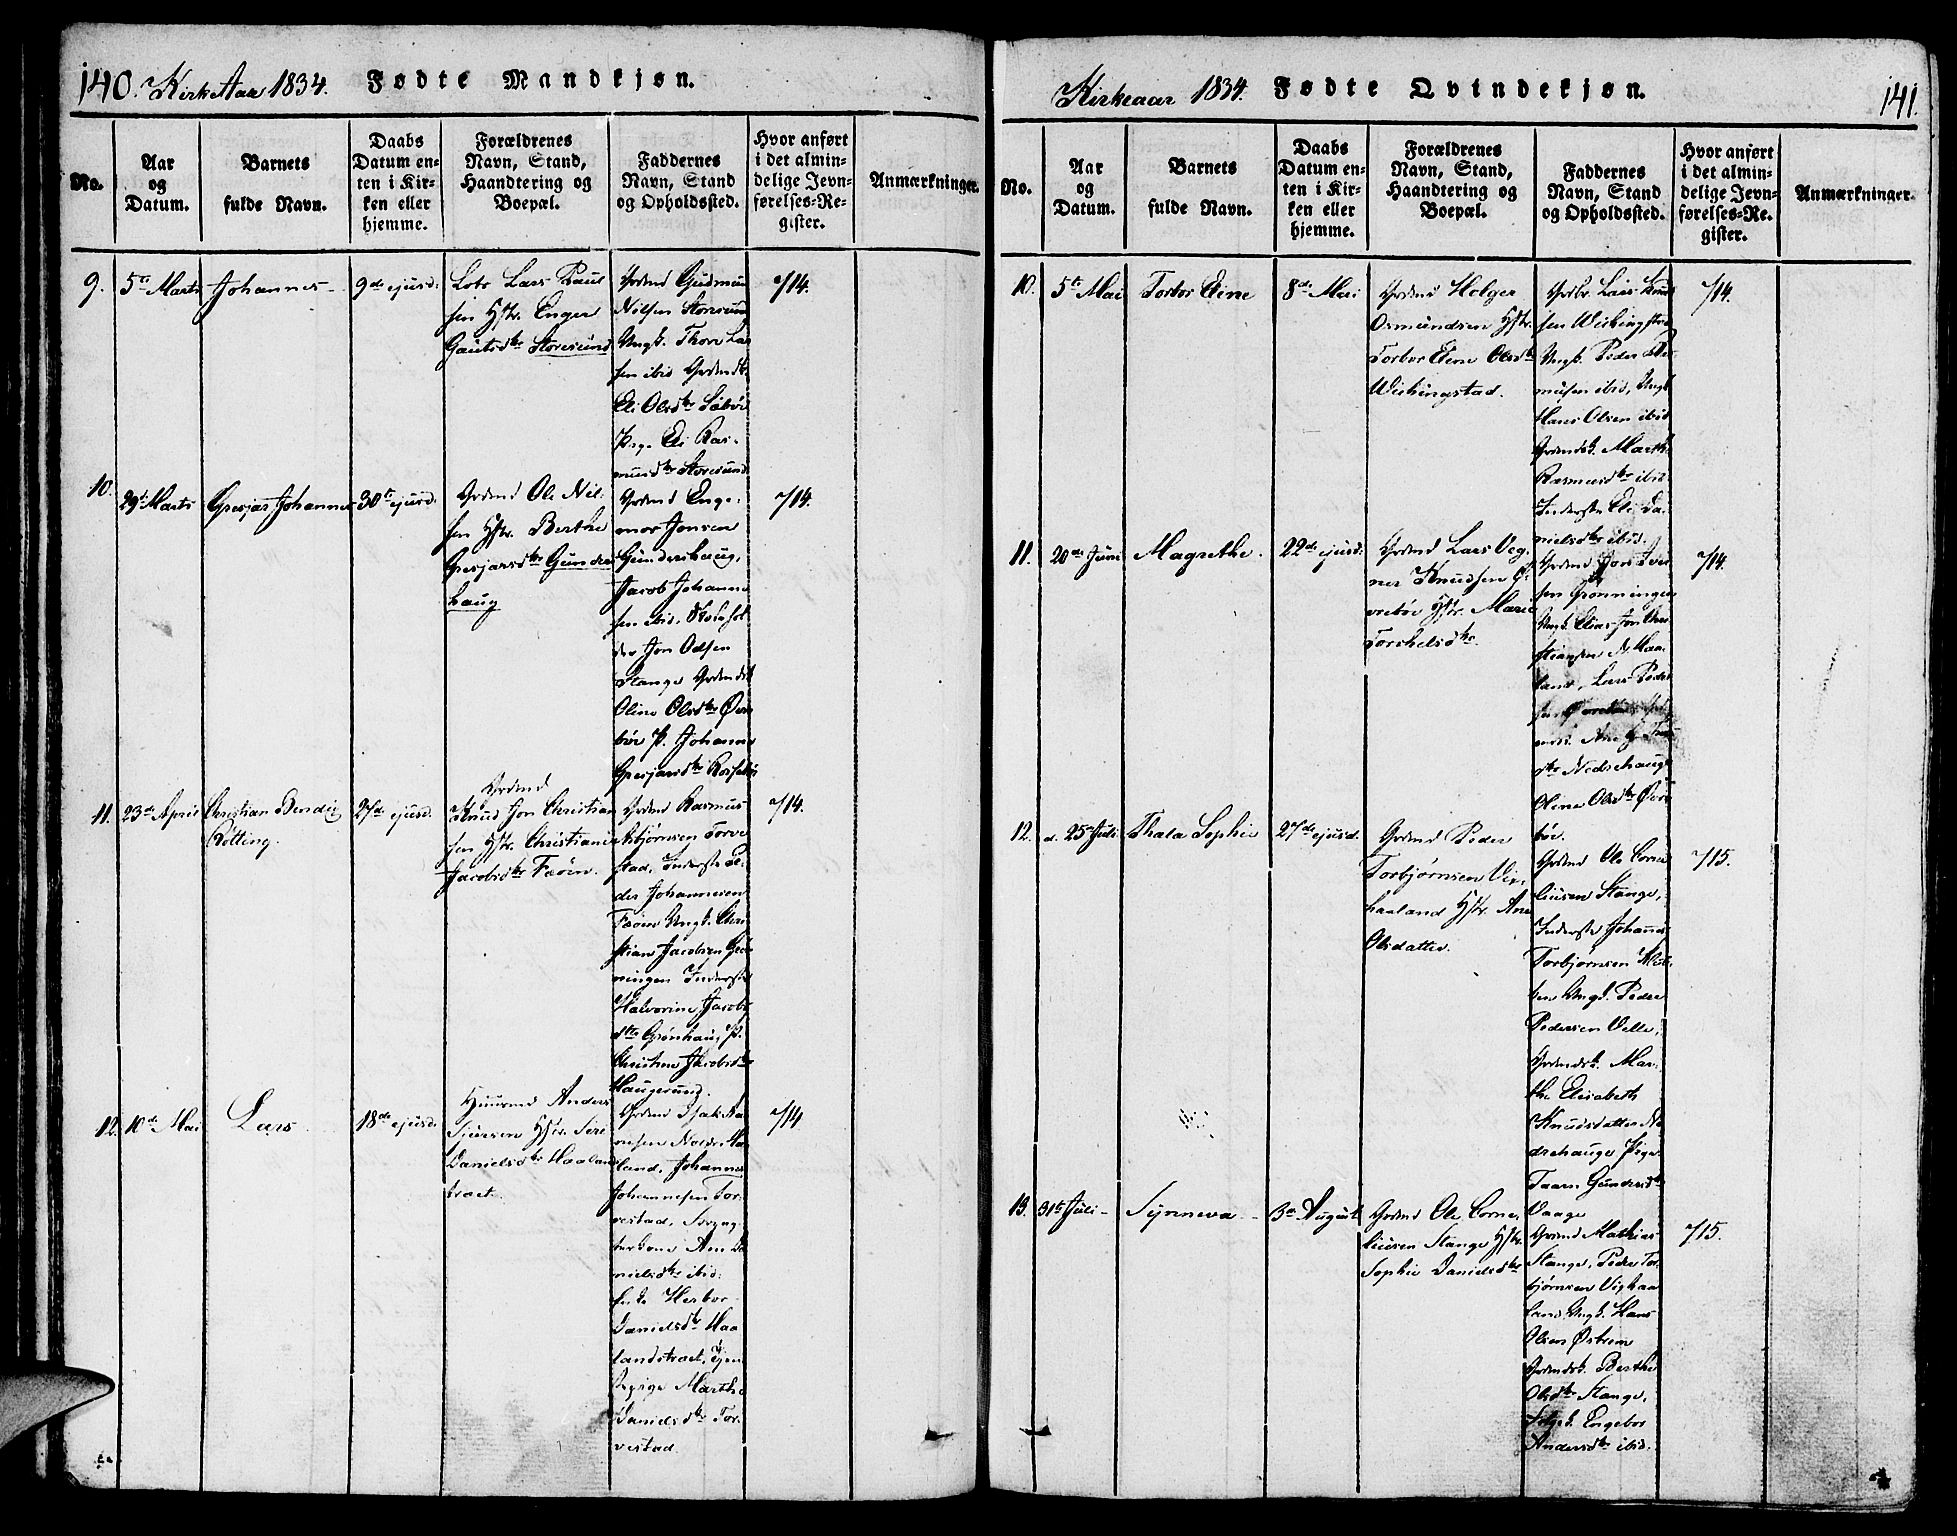 140. KirkeAar 1834. Fødte Mandkjøn.
No.
Aar
og
Datum.
Barnets
fulde Navn.
Daabs
Datum en-
ten i Kir-
ken eller
hjemme.
Forældrenes
Navn, Stand,
Haandtering og
Boepæl.
Faddernes
Navn, Stand
og Opholdssted.
Hvor anført
i det almin-
delige Jevn-
førelses-Re-
gister.
Anmærkninger.
9.
5te Marts
Johannes
9de ejusd.
Lots Lars Paul
sen Hstr. Enger
Gautsdtr Storesund
Grdmd Gudmun
Nilsen Storesund
Ungk. Thore Lar
sen ibid Grdmdk.
Eli Olsdtr Løbøe
Pig. Eli Ras-
musdtr Storesund
714.
10.
29de Marts
Gresjar Johannes
30te ejusd.
Grdmd Ole Nil-
sen Hstr. Berthe
Gresjarsdtr Gunders
haug
Grdmd Enge-
mor Jonsen
Gundershaug,
Jacob Johanne
sen ibid.
der Jon Odsen
Stange Grdmdk
Oline Olsdtr Øvre
bøe P. Johanne
Gresjarsdtr
714.
11.
23de April
Christian Bendix
Røtting.
27de ejusd.
Grdmd
Knud Jon Christian
sen Hstr. Christiane
Jacobsdtr Fæøen.
Grdmd Rasmus
Asbjørnsen Torve
stad, Inderste Pe-
der Johannesen
Fæøen Ungk. Chri
stian Jacobsen
ningen Inderste
Halvorine Jacobs
dtr Grønhaug, P.
Christine Jacobsdtr
Haugesund.
714.
12.
10de Mai
Lars
18de ejusd.
Huusmd Anders
Sjursen Hstr. Siri
Danielsdtr Haaland
træet.
Grdmd Isak
nesen Nordre Haa
land, Johannes
Johannesen Tor-
vestad,
kone Ane Da
nielsdtr ibid.
Herbor
Danielsdtr Haa
landstræet, Tjen
Marthe
Danielsdtr Tor-
vestad.
714
Kirkeaar 1834. Fødte Qvindekjøn. 141.
No.
Aar
og
Datum.
Barnets
fulde Navn.
Daabs
Datum en-
ten i Kir-
ken eller
hjemme.
Forældrenes
Navn, Stand,
Haandtering og
Boepæl.
Faddernes
Navn, Stand
og Opholdssted.
Hvor anført
i det almin-
delige Jevn-
førelses-Re-
gister.
Anmærkninger.
10.
5te Mai
Torbor Eline
8de Mai
Grdmd Helger
Osmundsen Hstr.
Torbor Eline Olsdtr
Wichingstad.
Grdbr. Lars Knud
sen Wichingstad
Ungk. Peder Ras-
musen ibid, Ungk
Hans Olsen ibid
Grdmdsk. Marthe
Rasmusdtr ibid
Inderste Eli Da-
nielsdtr ibid.
714.
11.
20de Juni
Magrethe.
22de ejusd.
Grdmd Lars Veg-
ner Knudsen Ø-
vrebøe Hstr. Marie
Torchelsdtr.
Grdmd Jon Iver
sen Grønningen
Ungk. Elias Jon Chri
stiansen N. Haa-
land, Lars Peder
sen Øvrebøe
Ane
Nedrehaug
Oline Olsdtr Øvre
bøe.
714.
12.
d. 25de Juli
Thala Sophie
27de ejusd.
Grdmd Peder
Torbjørnsen Vix-
haaland Hstr. Ane
Olsdatter.
Grdmd Ole Corne
liusen Stange,
Inderste Johannes
Torbjørnsen
Ungk. Peder
Pedersen Velle,
Grdmdsk. Mar-
the Elisabeth
Knudsdatter Ne
drehauge Pige
Taarn Gundersdtr
Vaage
715.
13.
31te Juli
Synneva
3de August
Grdmd Ole Corne-
liusen Stange Hstr.
Sophie Danielsdtr
Grdmd Mathias
Stange, Peder Tor
bjørnsen Vixhaa
land Ungk. Hans
Olsen Østrem
Grdmdsk. Berthe
Olsdtr Stange,
Engebor
Andersdtr ibid.
715.